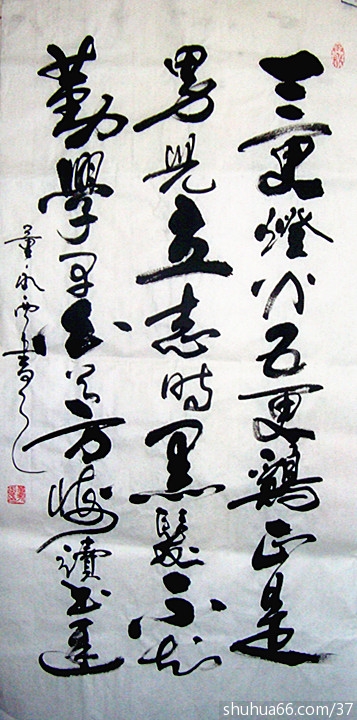 三更燈火五更鷄正是
男兒立志時黑髮不知
勤學早白首方悔讀書遲
書
shuhua66.com/37